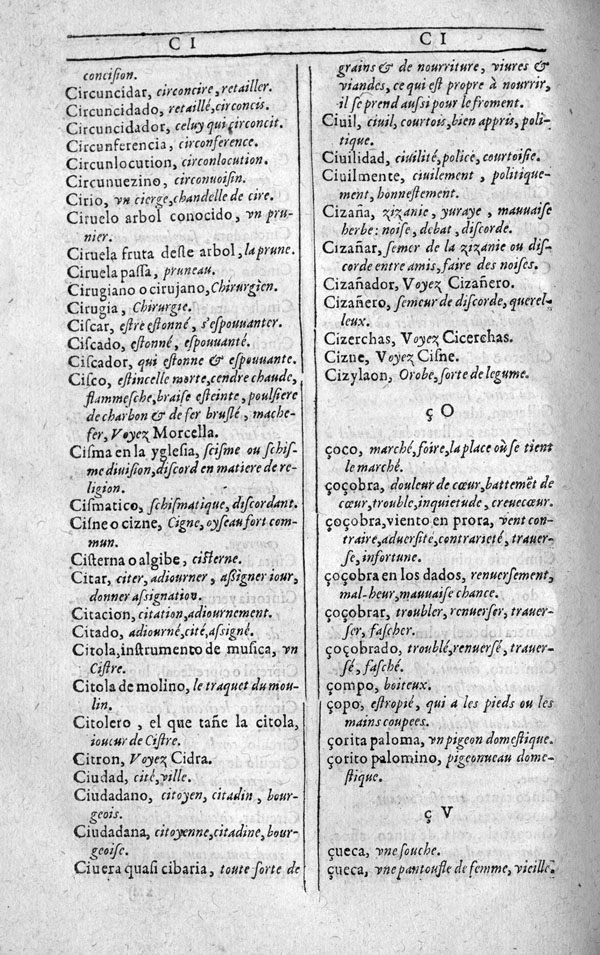 C I
concision.
Circuncidar, circoncire, retailler.
Circuncidado, retaillé, circoncis.
Circuncidador, celuy qui circoncit.
Circunferencia, circonference.
Circunlocution, circonlocution.
Circunuezino, circonuoisin.
Cirio, vn cierge, chandelle de cire.
Ciruelo arbol conocido, vn pru-
nier.
Ciruela fruta deste arbol, la prune.
Ciruela passa, pruneau.
Cirugiano o cirujano, Chirurgien.
Cirugia, Chirurgie.
Ciscar, estre estonné, s'espouuanter.
Ciscado, estonné, espouuanté.
Ciscador, qui estonne & espouuante.
Cisco, estincelle morte, cendre chaude,
flammesche, braise esteinte, poulsiere
de charbon & de fer bruslé, mache-
fer, Voyez Morcella.
Cisma en la yglesia, scisme ou schis-
me diuision, discord en matiere de re-
ligion.
Cismatico, schismatique, discordant.
Cisne o cizne, Cigne, oyseau fort com-
mun.
Cisterna o algibe, cisterne.
Citar, citer, adiourner, assigner iour,
donner assignation.
Citacion, citation, adiournement.
Citado, adiourné, cité, assigné.
Citola, instrumento de musica, vn
Cistre.
Citola de molino, le traquet du mou-
lin.
Citolero, el que tañe la citola,
ioueur de Cistre.
Citron, Voyez Cidra.
Ciudad, cité, ville.
Ciudadano, citoyen, citadin, bour-
geois.
Ciudadana, citoyenne, citadine, bour-
geoise.
Ciuera quasi cibaria, toute sorte de
C I
grains & de nourriture, viures &
viandes, ce qui est propre à nourrir,
il se prend aussi pour le froment.
Ciuil, ciuil, courtois, bien appris, poli-
tique.
Ciuilidad, ciuilité, police, courtoisie.
Ciuilmente, ciuilement, politique-
ment, honnestement.
Cizaña, zizanie, yuraye, mauuaise
herbe: noise, debat, discorde.
Cizañar, semer de la zizanie ou dis-
corde entre amis, faire des noises.
Cizañador, Voyez Cizañero.
Cizañero, semeur de discorde, querel-
leux.
Cizerchas, Voyez Cicerchas.
Cizne, Voyez Cisne.
Cizylaon, Orobe, sorte de legume.
ç O
çoco, marché, foire, la place où se tient
le marché.
çoçobra, douleur de cœur, battemẽt de
cœur, trouble, inquietude, creuecœur.
çoçobra, viento en prora, vent con-
traire, aduersité, contrarieté, trauer-
se, infortune.
çoçobra en los dados, renuersement,
mal-heur, mauuaise chance.
çoçobrar, troubler, renuerser, trauer-
ser, fascher.
çoçobrado, troublé, renuersé, trauer-
sé, fasché.
çompo, boiteux.
çopo, estropié, qui a les pieds ou les
mains coupees.
çorita paloma, vn pigeon domestique.
çorito palomino, pigeonneau dome-
stique.
ç V
çueca, vne souche.
çueca, vne pantoufle de femme, vieille.